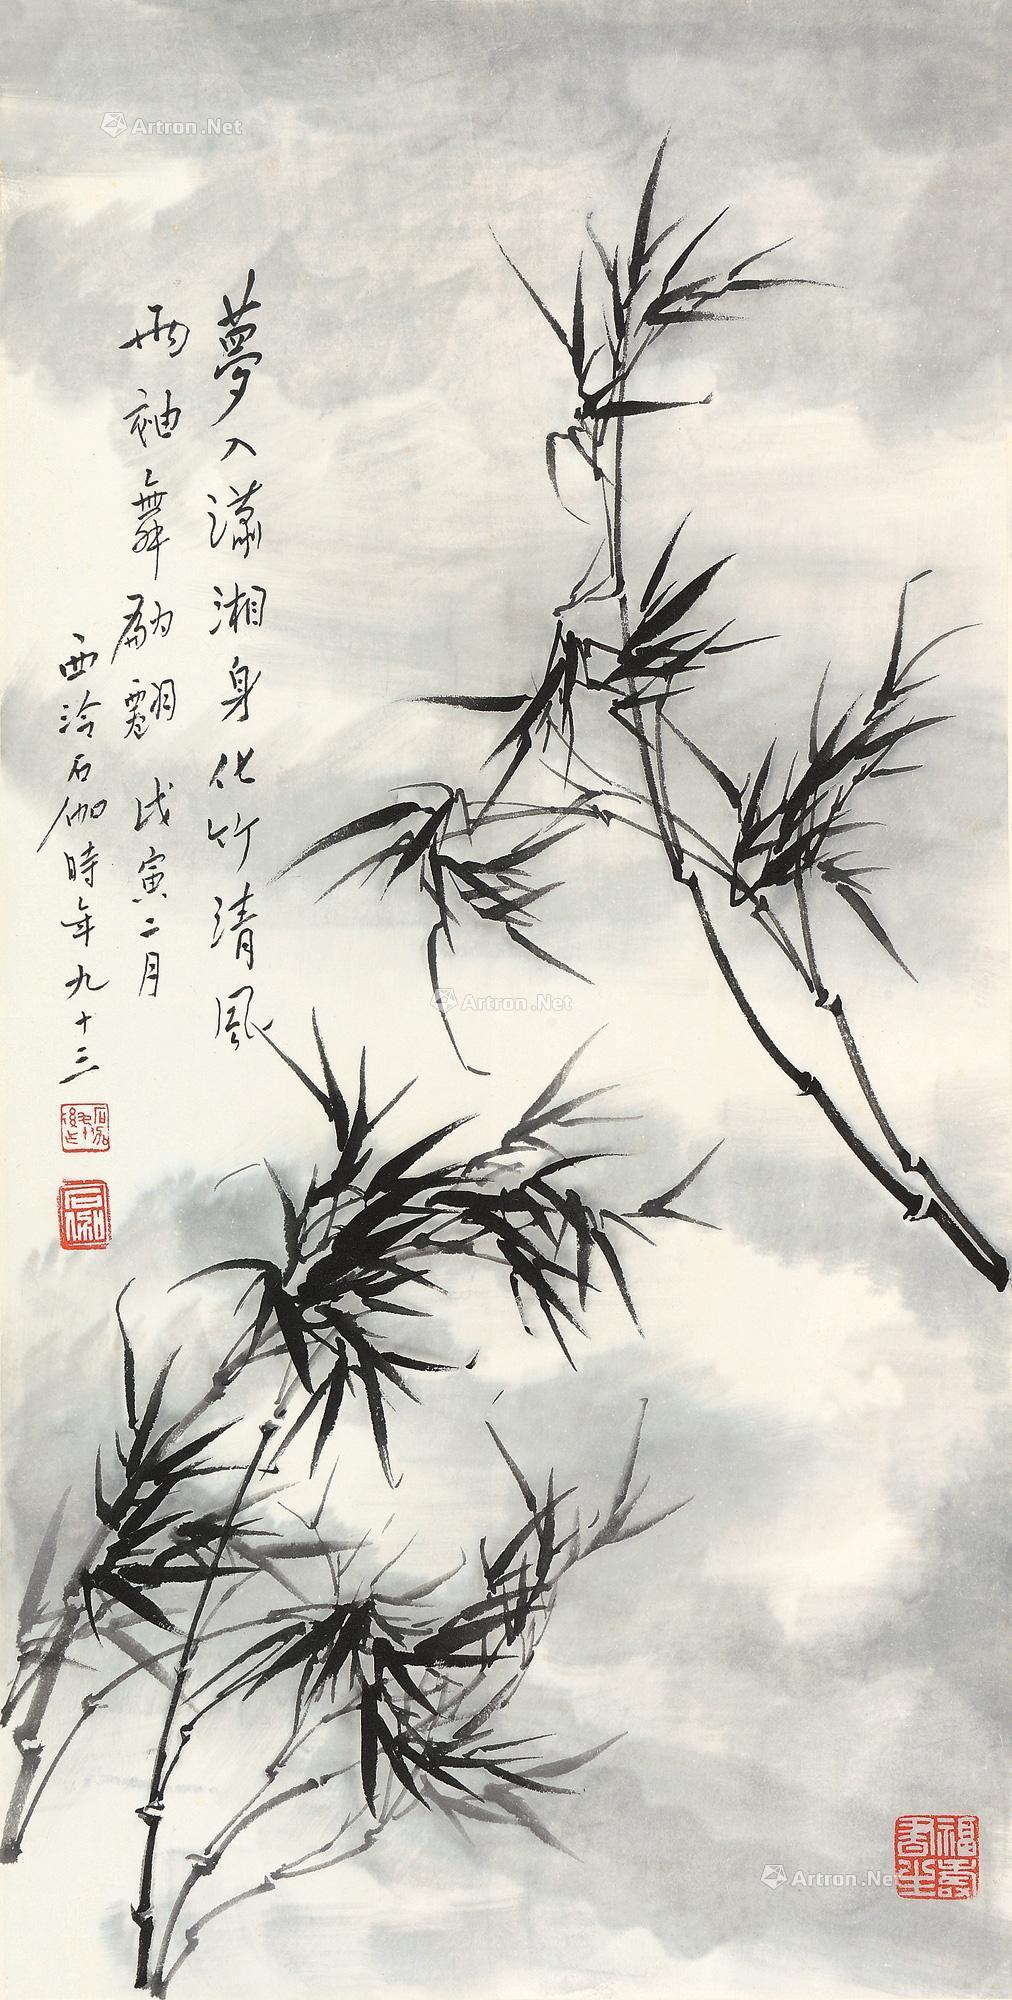 夢入瀟湘身化竹清風
兩袖舞翩翻戊寅二月
西泠石伽時年九十三
石伽
福壽
Artron.Net
Artron.Net
Artron.Net